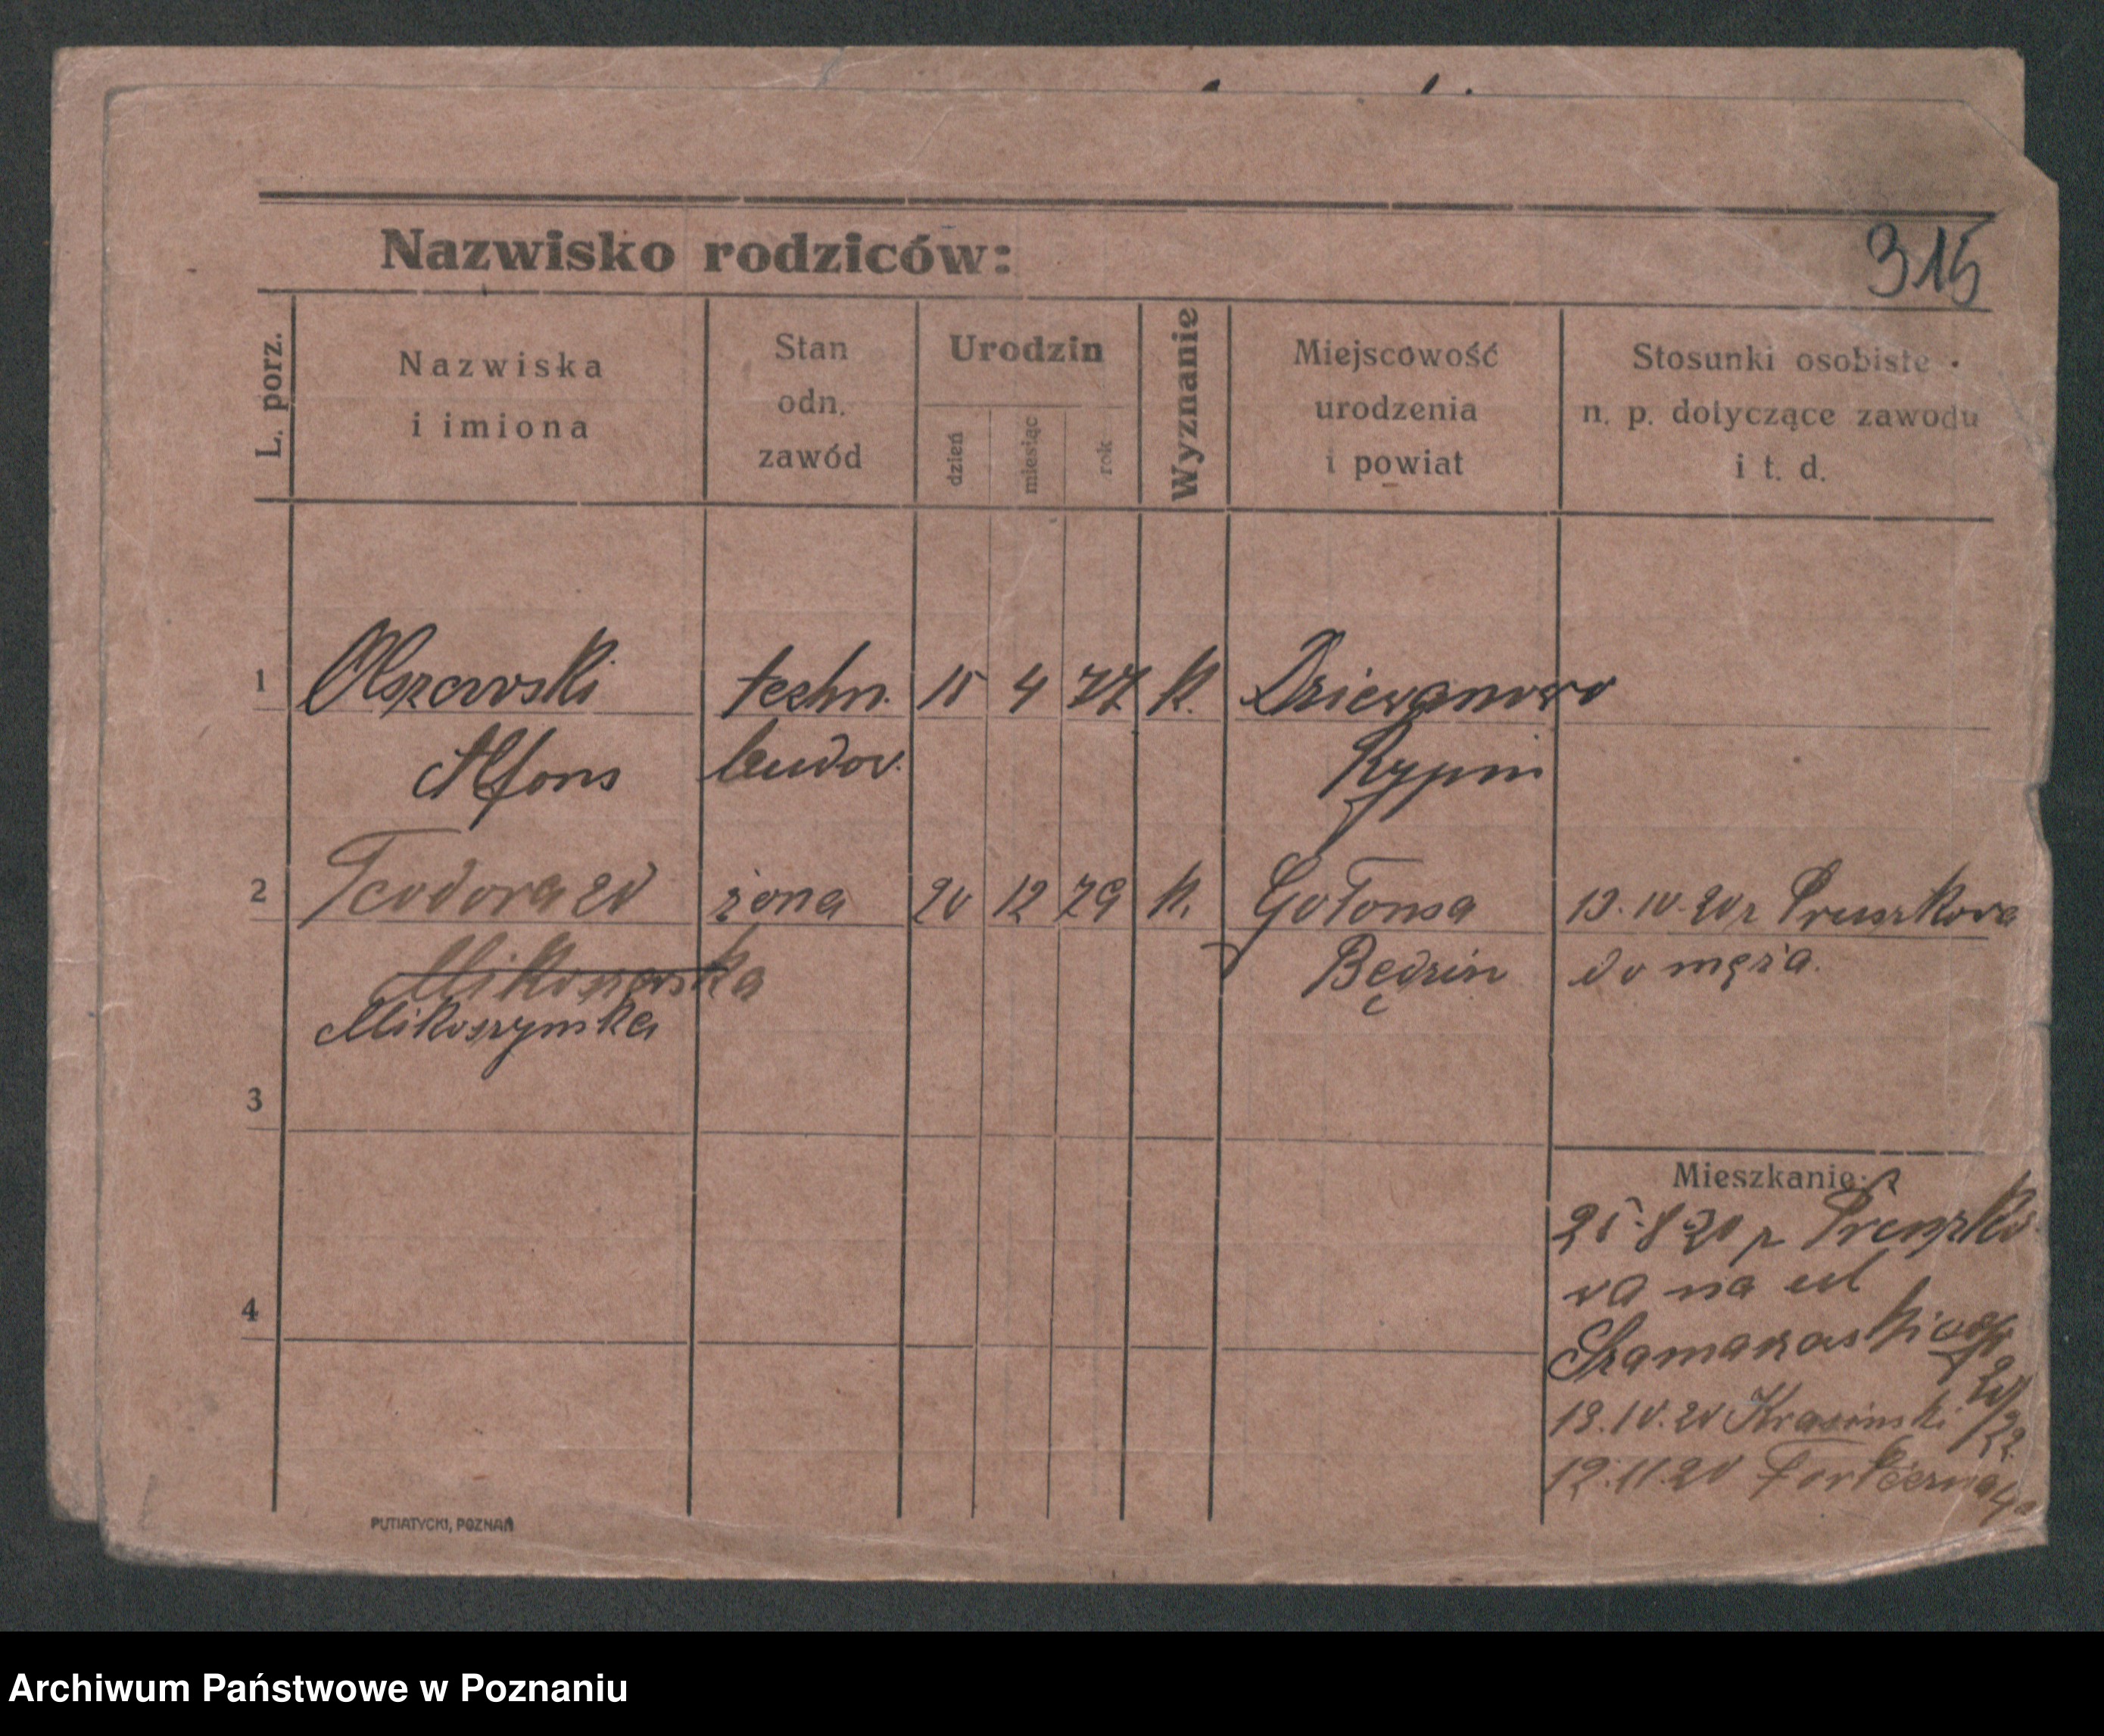 Nazwisko rodziców:
315
L. porz.
Nazwiska
i imiona
Stan
odn.
zawód
Urodzin
dzień
miesiąc
rok
Wyznanie
Miejscowość
urodzenia
i powiat
Stosunki osobiste
n. p. dotyczące zawodu
i t. d.
1 Olszewski techn. 15 4 77 k. Dziewanowo
Alfons budow. Rypin
2 Teodora zd żona 20 12 79 k. Gołonsa 13.10.20 z Pruszkowa
Będzin do męża.
Mikoszynska
3
Mieszkanie:
25.8.20 z Pruszko
wa na ul
4
18.10.20 Krasinski
12.11.20 Forteczna 4a
PUTIATYCKI, POZNAŃ
Archiwum Państwowe w Poznaniu